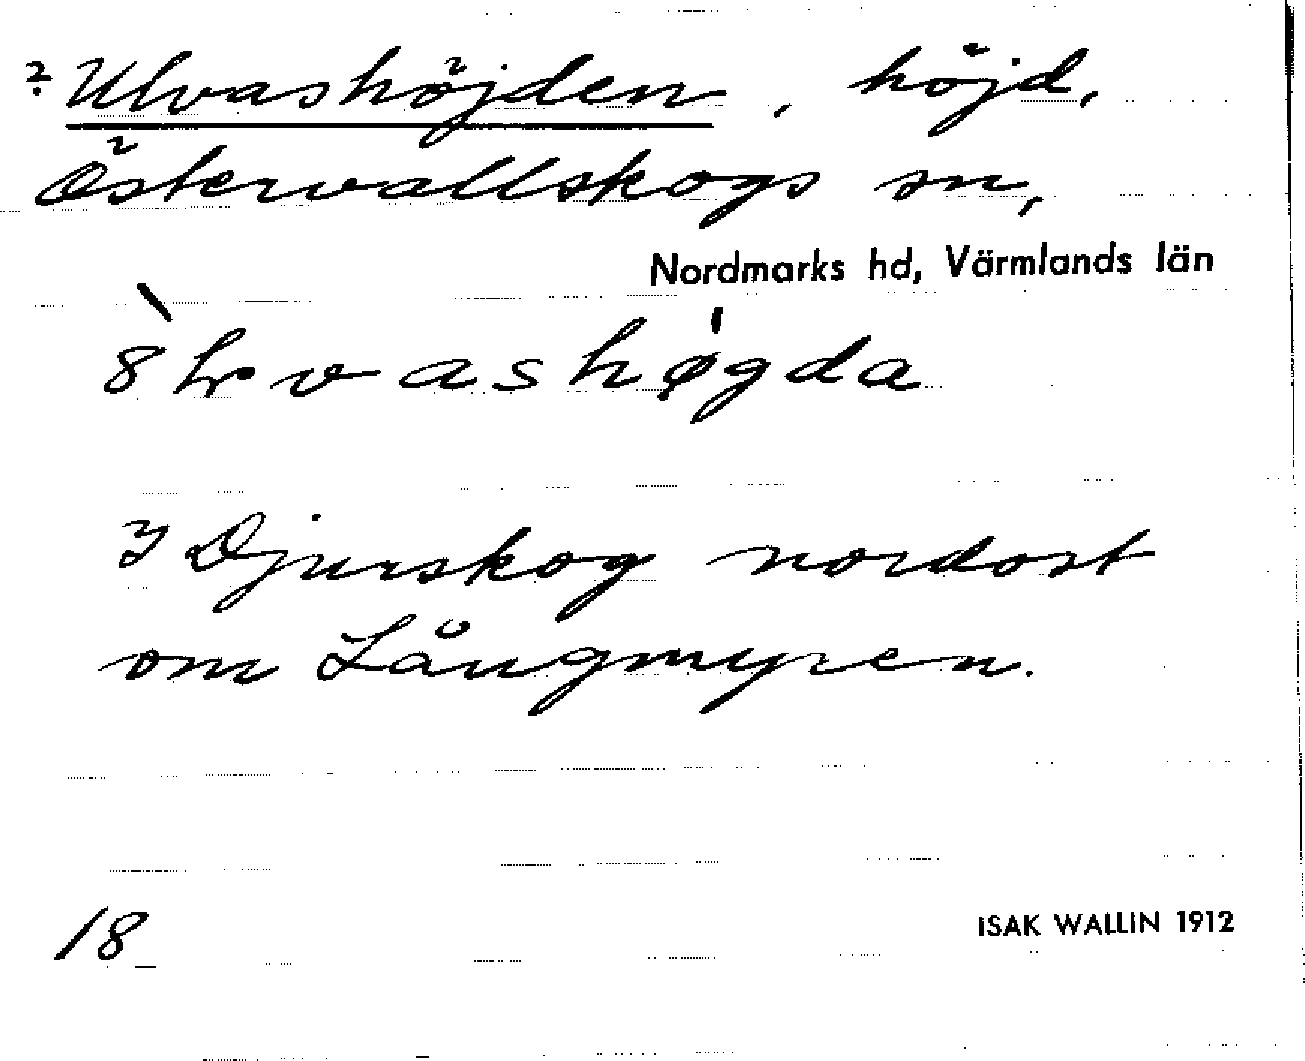 ? Ulvashöjden, höjd,
Östervallskogs sn,
Nordmarks hd, Värmlands län
I Djurskog nordost
om Långmyren.
18
ISAK WALLIN 1912